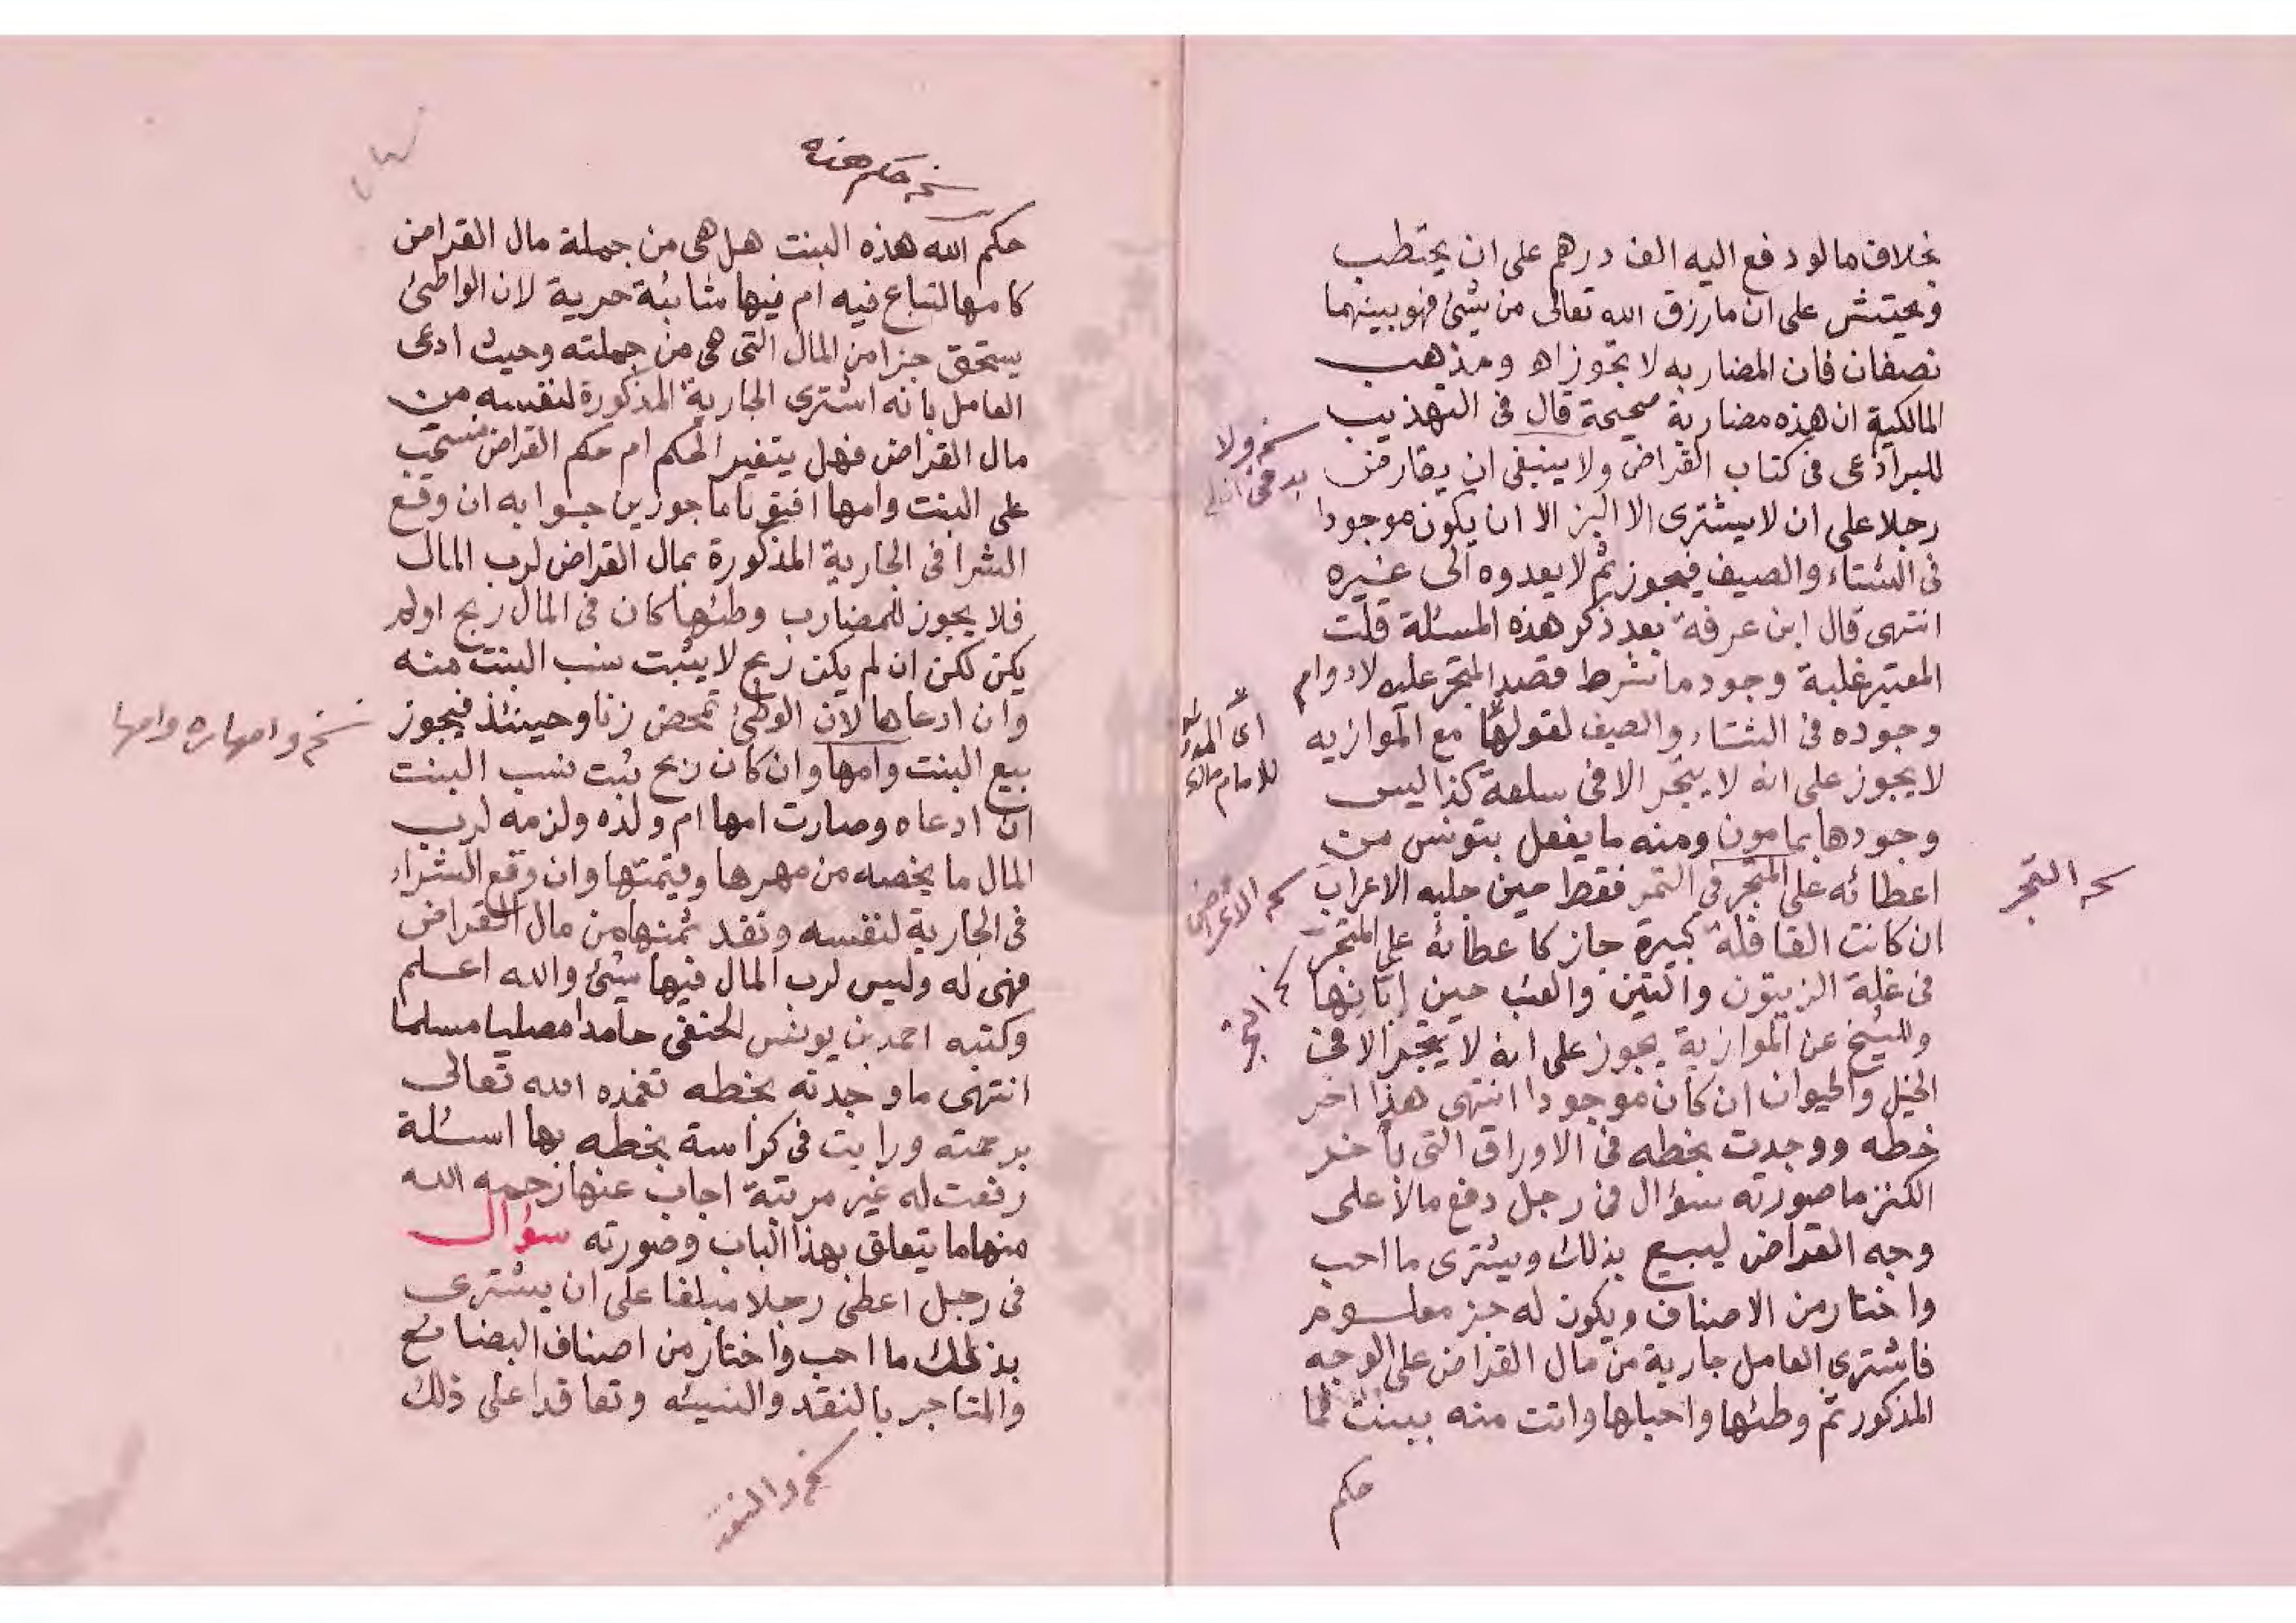 بخلاف ما لو دفع اليه الف درهم على ان يحتطب
ويحتش على ان ما رزق الله تعالى من شيئ فهو بينهما
نصفان فان المضاربه لا تجوز اه ومذهب
المالكية ان هذه مضاربة صحيحة قال في التهذيب
للبراذعى فى كتاب القراض ولا ينبغى ان يقارض
رجلا على ان لا يشترى الا البز الا ان يكون موجودا
فى الشتاء والصيف فيجوز ثم لا يعدوه الى غيره
انتهى قال ابن عرفة بعد ذكر هذه المسئلة قلت
المعتبر غلبة وجود ما شرط قصد المتجر عليه لا دوام
وجوده فى الشتاء والصيف لقولها مع الموازيه
لا يجوز على انه لا يتجر الا فى سلعة كذا ليس
وجودها بمامون ومنه ما يفعل بتونس من
اعطائه على المتجر في التمر فقط حين جلبه الاعراب
ان كانت القافلة كبيرة جاز كاعطائه على المتجر
فى غلة الزيتون والتين والعنب حين إبانها
وللشيخ عن الموازية يجوز على انه لا يتجر الا في
الخيل والحيوان ان كان موجودا انتهى هذا اخر
خطه ووجدت بخطه فى الاوراق التى بآخر
الكنز ما صورته سؤال فى رجل دفع مالا على
وجه القراض ليبيع بذلك ويشترى ما احب
واختار من الاصناف ويكون له جز معلوم
فاشترى العامل جارية من مال القراض على الوجه
المذكور ثم وطئها واحبلها واتت منه ببنت فما
حكم
نخ ولا
اى المدونة
للامام مالك
نخه الاعراض
نخ التجر
نخه التجر
نخه حكم هذه
حكم الله هذه البنت هل هى من جملة مال القراض
كامها لتباع فيه ام فيها شائبة حرية لان الواطئ
يستحق جزا من المال التى هى من جملته وحيث ادعى
العامل بانه اشترى الجارية المذكورة لنفسه من
مال القراض فهل يتغير الحكم ام حكم القراض منسحب
على البنت وامها افتونا ماجورين جوابه ان وقع
الشرا فى الجارية المذكورة بمال القراض لرب المال
فلا يجوز للمضارب وطئها كان فى المال ربح اولم
يكن لكن ان لم يكن ربح لا يثبت نسب البنت منه
وان ادعاها لان الوطئ تمحض زنا وحينئذ فيجوز
بيع البنت وامها وان كان ربح ثبت نسب البنت
ان ادعاه وصارت امها ام ولده ولزمه لرب
المال ما يخصه من مهرها وقيمتها وان وقع الشراء
فى الجارية لنفسه ونقد ثمنها من مال القراض
فهى له وليس لرب المال فيها شيئ والله اعلم
وكتبه احمد بن يونس الحنفى حامدا مصليا مسلما
انتهى ما وجدته بخطه تغمده الله تعالى
برحمته ورايت فى كراسة بخطه بها اسئلة
رفعت له غير مرتبة اجاب عنها رحمه الله
منها ما يتعلق بهذا الباب وصورته سؤال
فى رجل اعطى رجلا مبلغا على ان يشترى
بذلك ما احب واختار من اصناف البضائع
والمتاجر بالنقد والنسيئه وتعاقدا على ذلك
نخ وامهاره وامها